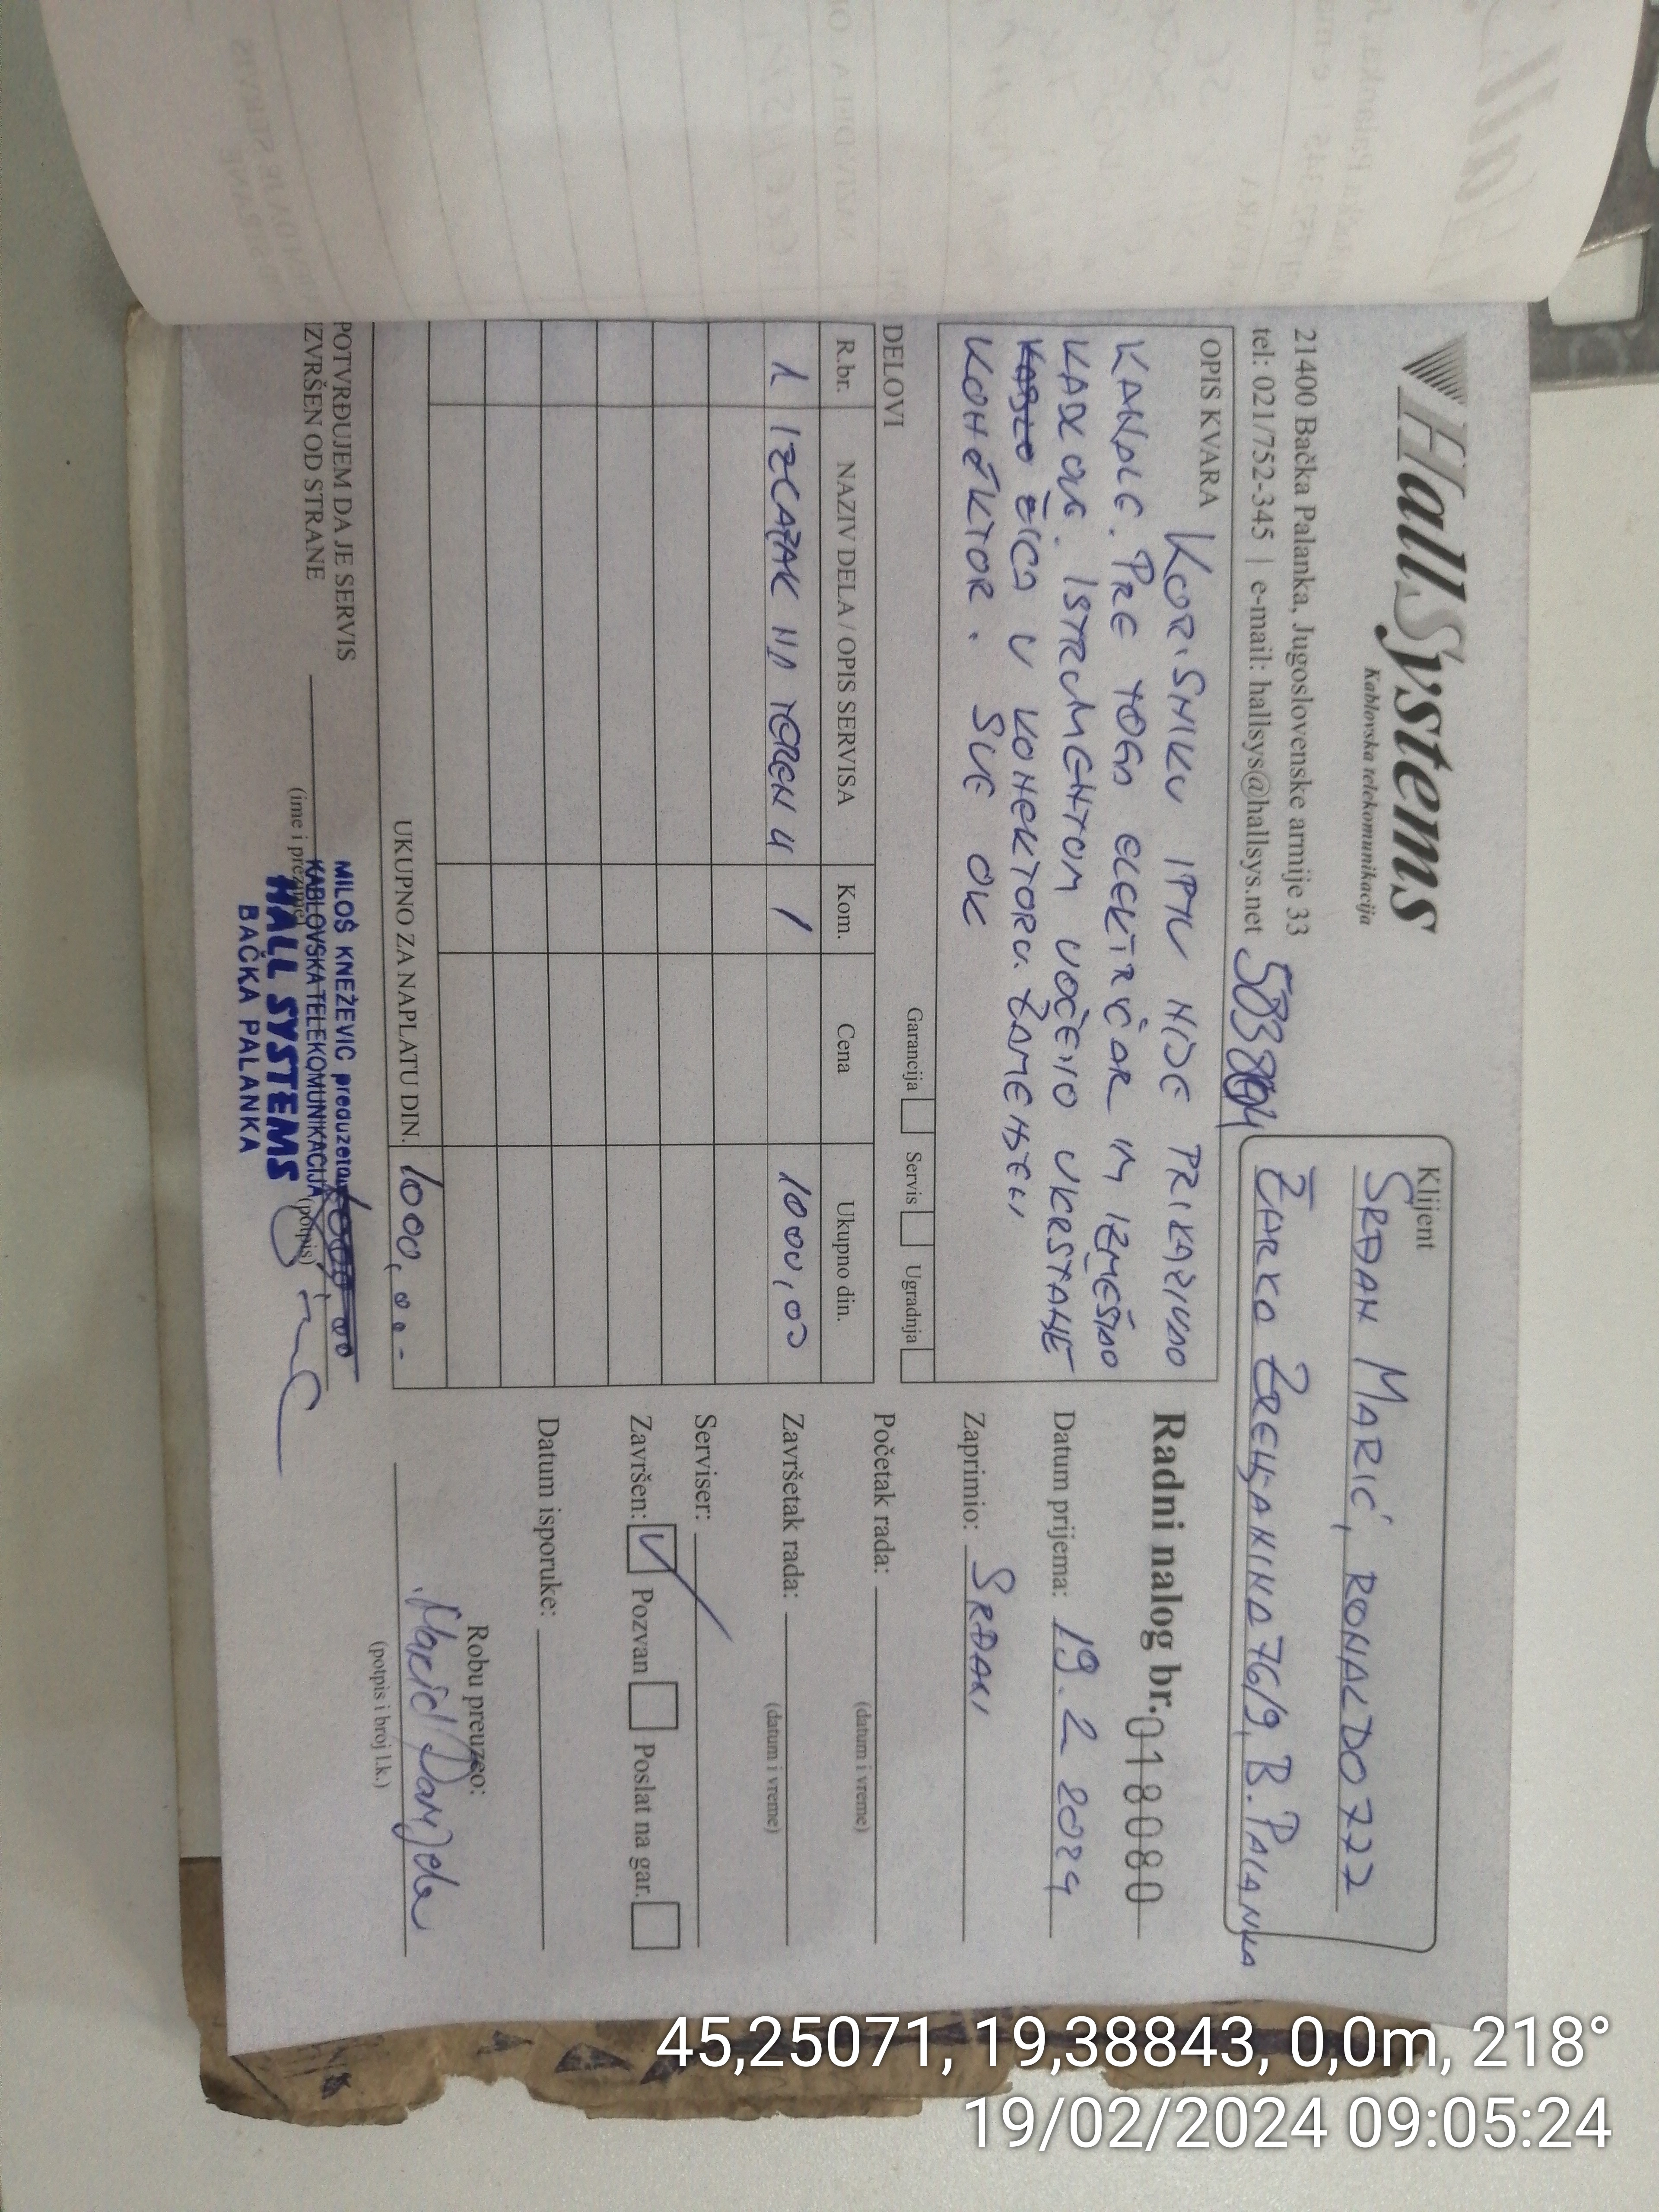 HallSystems
Kablovska telekomunikacija
21400 Bačka Palanka, Jugoslovenske armije 33
tel: 021/752-345 | e-mail: hallsys@hallsys.net
Klijent
SRĐAN MARIĆ, RONALDO777
ŽARKO ZRENJANINA 76/9, B. PALANKA
OPIS KVARA KORISNIKU IPTV NIJE PRIKAZIVAO
KANALE. PRE TOGA ELEKTRIČAR IM IZMEŠTAO
KABLOVE. ISTRUMENTOM UOČENO UKRŠTANJE
ŽICA U KONEKTORU. ZAMENJEN
KONEKTOR. SVE OK
Radni nalog br. 018080
Datum prijema: 19. 2 2024
Zaprimio: SRĐAN
Početak rada:
(datum i vreme)
Završetak rada:
(datum i vreme)
Serviser:
Završen: Pozvan Poslat na gar.
Datum isporuke:
Robu preuzeo:
(potpis i broj l.k.)
Garancija Servis Ugradnja
DELOVI
R.br. NAZIV DELA / OPIS SERVISA Kom. Cena Ukupno din.
1 IZLAZAK NA TEREN 1 1000,00
UKUPNO ZA NAPLATU DIN. 1000,00-
POTVRĐUJEM DA JE SERVIS
IZVRŠEN OD STRANE
(ime i prezime) (potpis)
MILOŠ KNEŽEVIĆ preduzetnik
KABLOVSKA TELEKOMUNIKACIJA
HALL SYSTEMS
BAČKA PALANKA
45,25071, 19,38843, 0,0m, 218°
19/02/2024 09:05:24